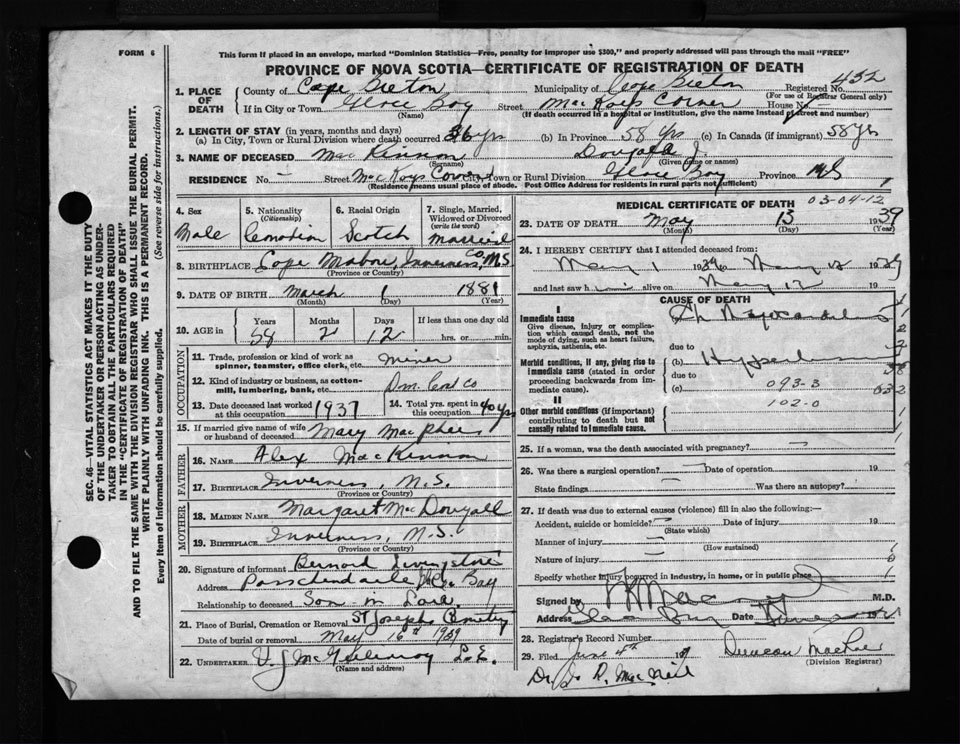 FORM 6
This form if placed in an envelope, marked "Dominion Statistics—Free, penalty for improper use $300," and properly addressed will pass through the mail "FREE"
PROVINCE OF NOVA SCOTIA—CERTIFICATE OF REGISTRATION OF DEATH
SEC. 46—VITAL STATISTICS ACT MAKES IT THE DUTY
OF THE UNDERTAKER OR PERSON ACTING AS UNDER-
TAKER TO OBTAIN ALL THE PARTICULARS REQUIRED
IN THE "CERTIFICATE OF REGISTRATION OF DEATH"
AND TO FILE THE SAME WITH THE DIVISION REGISTRAR WHO SHALL ISSUE THE BURIAL PERMIT.
WRITE PLAINLY WITH UNFADING INK. THIS IS A PERMANENT RECORD.
Every item of information should be carefully supplied. (See reverse side for instructions.)
1. PLACE OF DEATH
County of Cape Breton Municipality of Cape Breton Registered No. 432
(For use of Registrar General only)
If in City or Town Glace Bay Street MacKays Corner House No. –
(Name) (If death occurred in a hospital or institution, give the name instead of street and number)
2. LENGTH OF STAY (in years, months and days)
(a) In City, Town or Rural Division where death occurred 36 yrs (b) In Province 58 Yrs (c) In Canada (if immigrant) 58 yrs
3. NAME OF DECEASED MacKinnon Dougald J.
(Surname) (Given name or names)
RESIDENCE No. – Street MacKays Corner City, Town or Rural Division Glace Bay Province N.S
(Residence means usual place of abode. Post Office Address for residents in rural parts not sufficient)
4. Sex Male
5. Nationality (Citizenship) Canadian
6. Racial Origin Scotch
7. Single, Married, Widowed or Divorced (write the word) Married
8. BIRTHPLACE Cape Mabou, Inverness Co, N.S
(Province or Country)
9. DATE OF BIRTH March 1 1881
(Month) (Day) (Year)
10. AGE in Years 58 Months 2 Days 12 If less than one day old hrs. or min.
OCCUPATION
11. Trade, profession or kind of work as spinner, teamster, office clerk, etc. Miner
12. Kind of industry or business, as cotton-mill, lumbering, bank, etc. Dom. Coal Co
13. Date deceased last worked at this occupation 1937
14. Total yrs. spent in this occupation 40 yrs
15. If married give name of wife or husband of deceased Mary MacPhee
FATHER
16. NAME Alex MacKinnon
17. BIRTHPLACE Inverness, N.S.
(Province or Country)
MOTHER
18. MAIDEN NAME Margaret MacDougall
19. BIRTHPLACE Inverness, N.S.
(Province or Country)
20. Signature of informant Bernard Livingstone
Address Passchendaele Bay
Relationship to deceased Son in Law.
21. Place of Burial, Cremation or Removal St Josephs Cemetry
Date of burial or removal May 16th 1939
22. UNDERTAKER
(Name and address)
MEDICAL CERTIFICATE OF DEATH
03-04-12
23. DATE OF DEATH May 13 1939
(Month) (Day) (Year)
24. I HEREBY CERTIFY that I attended deceased from:
May 1 1939 to May 12 1939
and last saw h im alive on May 12 19
CAUSE OF DEATH
I
Immediate cause
Give disease, injury or complication which caused death, not the mode of dying, such as heart failure, asphyxia, asthenia, etc.
due to
Morbid conditions, if any, giving rise to immediate cause (stated in order proceeding backwards from immediate cause).
(b)
due to
(c) 093-3
102-0
II
Other morbid conditions (if important) contributing to death but not causally related to immediate cause.
25. If a woman, was the death associated with pregnancy? –
26. Was there a surgical operation? – Date of operation 19
State findings Was there an autopsy?
27. If death was due to external causes (violence) fill in also the following:—
Accident, suicide or homicide? – Date of injury 19
(State which)
Manner of injury –
(How sustained)
Nature of injury –
Specify whether injury occurred in industry, in home, or in public place
Signed by M.D.
Address Glace Bay Date 19
28. Registrar's Record Number
29. Filed June 4th 19 Duncan MacRae
(Division Registrar)
MacNeil